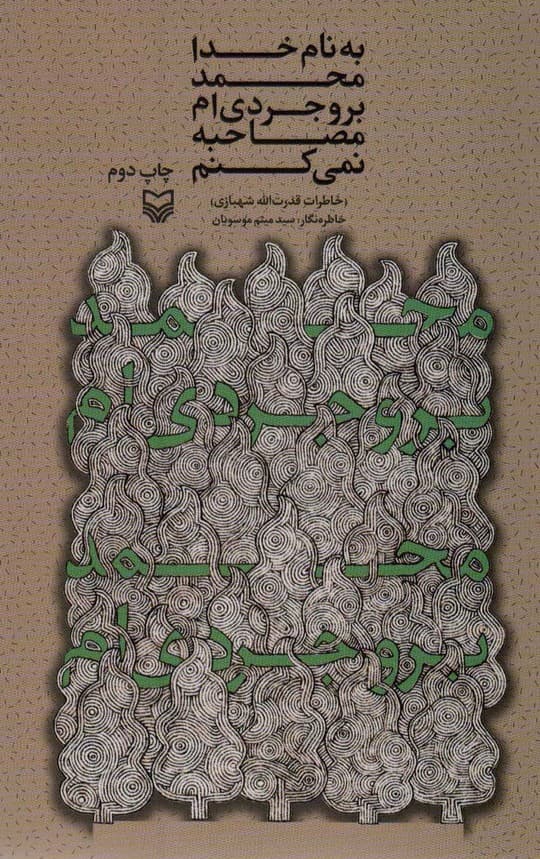 به نام خدا
محمد
بروجردی‌ام
مصاحبه
نمی‌کنم
چاپ دوم
(خاطرات قدرت‌الله شهبازی)
خاطره‌نگار: سید میثم موسویان
محمد
بروجردی ام
محمد
بروجردی ام